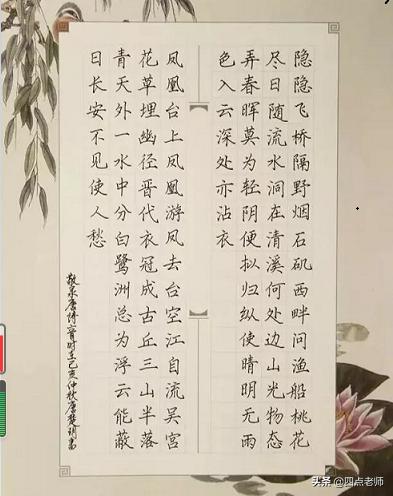 隐隐飞桥隔野烟石矶西畔问渔船桃花
尽日随流水洞在清溪何处边山光物态
弄春晖莫为轻阴便拟归纵使晴明无雨
色入云深处亦沾衣
凤凰台上凤凰游凤去台空江自流吴宫
花草埋幽径晋代衣冠成古丘三山半落
青天外一水中分白鹭洲总为浮云能蔽
日长安不见使人愁
敬录唐诗己亥仲秋
头条 @四点老师